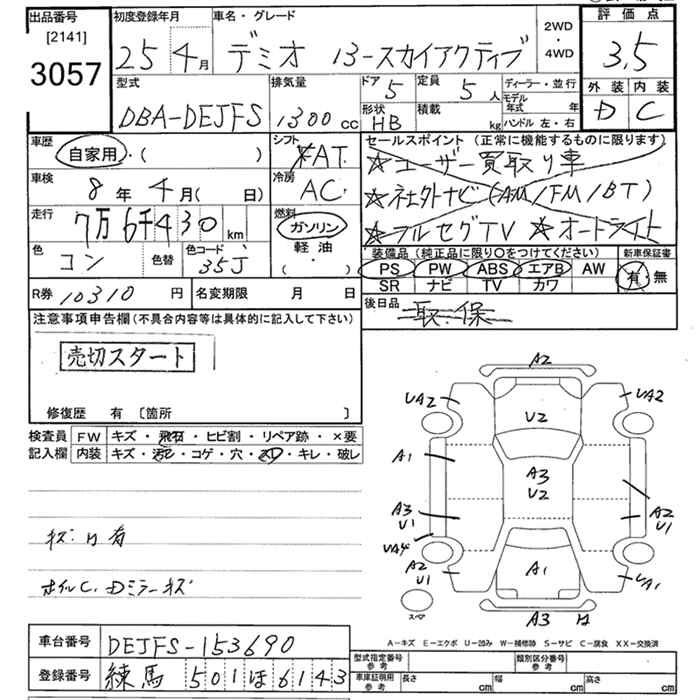 出品番号
[2141]
3057
初度登録年月
25年4月
車名・グレード
デミオ 13-スカイアクティブ
2WD
・
4WD
評価点
3.5
外装 内装
D C
型式
DBA-DEJFS
排気量
1300cc
ドア
5
形状
HB
定員
5人
積載
kg
ディーラー・並行
モデル年式 年
ハンドル 左・右
車歴
自家用・( )
シフト
AT
車検
8年4月( 日)
冷房
AC
走行
7万6千430km
燃料
ガソリン
軽油・
( )
色
コン
色替
色コード
35J
セールスポイント (正常に機能するものに限ります)
☆ユーザー買取り車
☆社外ナビ(AM/FM/BT)
☆フルセグTV ☆オートライト
装備品 (純正品に限り○をつけてください)
新車保証書
PS PW ABS エアB AW
SR ナビ TV カワ
有 無
R券 10310円
名変期限 月 日
後日品
取.保
注意事項申告欄 (不具合内容等は具体的に記入して下さい)
売切スタート
修復歴 有 [箇所 ]
検査員 FW キズ・飛石・ヒビ割・リペア跡・×要
記入欄 内装 キズ・汚レ・コゲ・穴・スレ・キレ・破レ
キズ.H有
ホイルC.Dミラーキズ
A2
UA2
UA2
U2
A1
A3
U2
A3
U1
A2
U1
UA4
A2
U1
A1
UA1
スペア
A3
H
A-キズ E-エクボ U-凹み W-補修跡 S-サビ C-腐食 XX-交換済
車台番号 DEJFS-153690
登録番号 練馬 501ほ6143
型式指定番号
参考
類別区分番号
参考
車庫証明用
参考
長さ cm 幅 cm 高さ cm